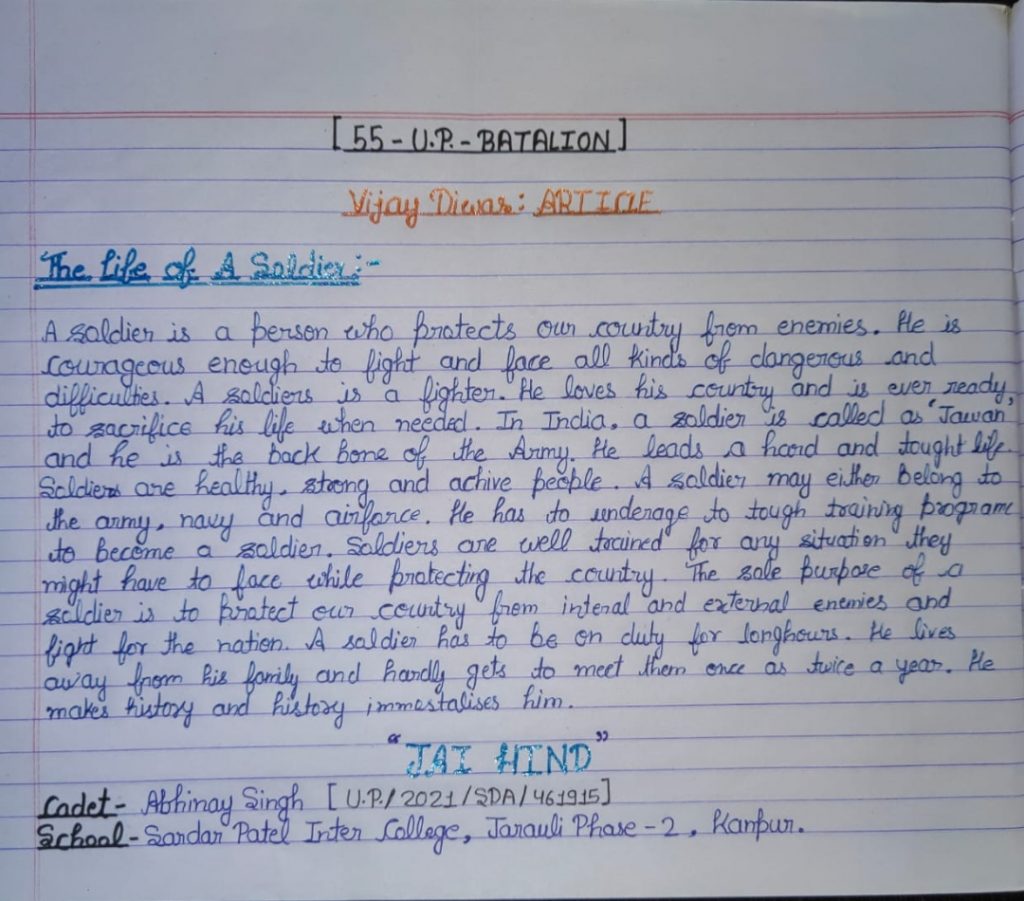 [55-U.P.-BATALION]
Vijay Diwas: ARTICLE
The Life of A Soldier:-
A soldier is a person who protects our country from enemies. He is
courageous enough to fight and face all kinds of dangerous and
difficulties. A soldiers is a fighter. He loves his country and is ever ready,
to sacrifice his life when needed. In India, a soldier is called as 'Jawan'
and he is the back bone of the Army. He leads a hard and tought life.
Soldiers are healthy, strong and achive people. A soldier may either belong to
the army, navy and airforce. He has to underage to tough training programe
to become a soldier. Soldiers are well trained for any situation they
might have to face while protecting the country. The sole purpose of a
soldier is to protect our country from interal and external enemies and
fight for the nation. A soldier has to be on duty for longhours. He lives
away from his family and hardly gets to meet them once as twice a year. He
makes history and history immostalises him.
"JAI HIND"
Cadet- Abhinay Singh [U.P./2021/SDA/461915]
School- Sardar Patel Inter College, Jarauli Phase-2, Kanpur.